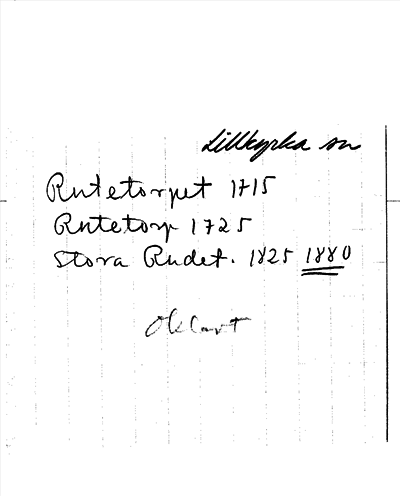 Lillkyrka sn
Rutetorpet 1715
Rutetorp 1725
Stora Rudet. 1825 1880